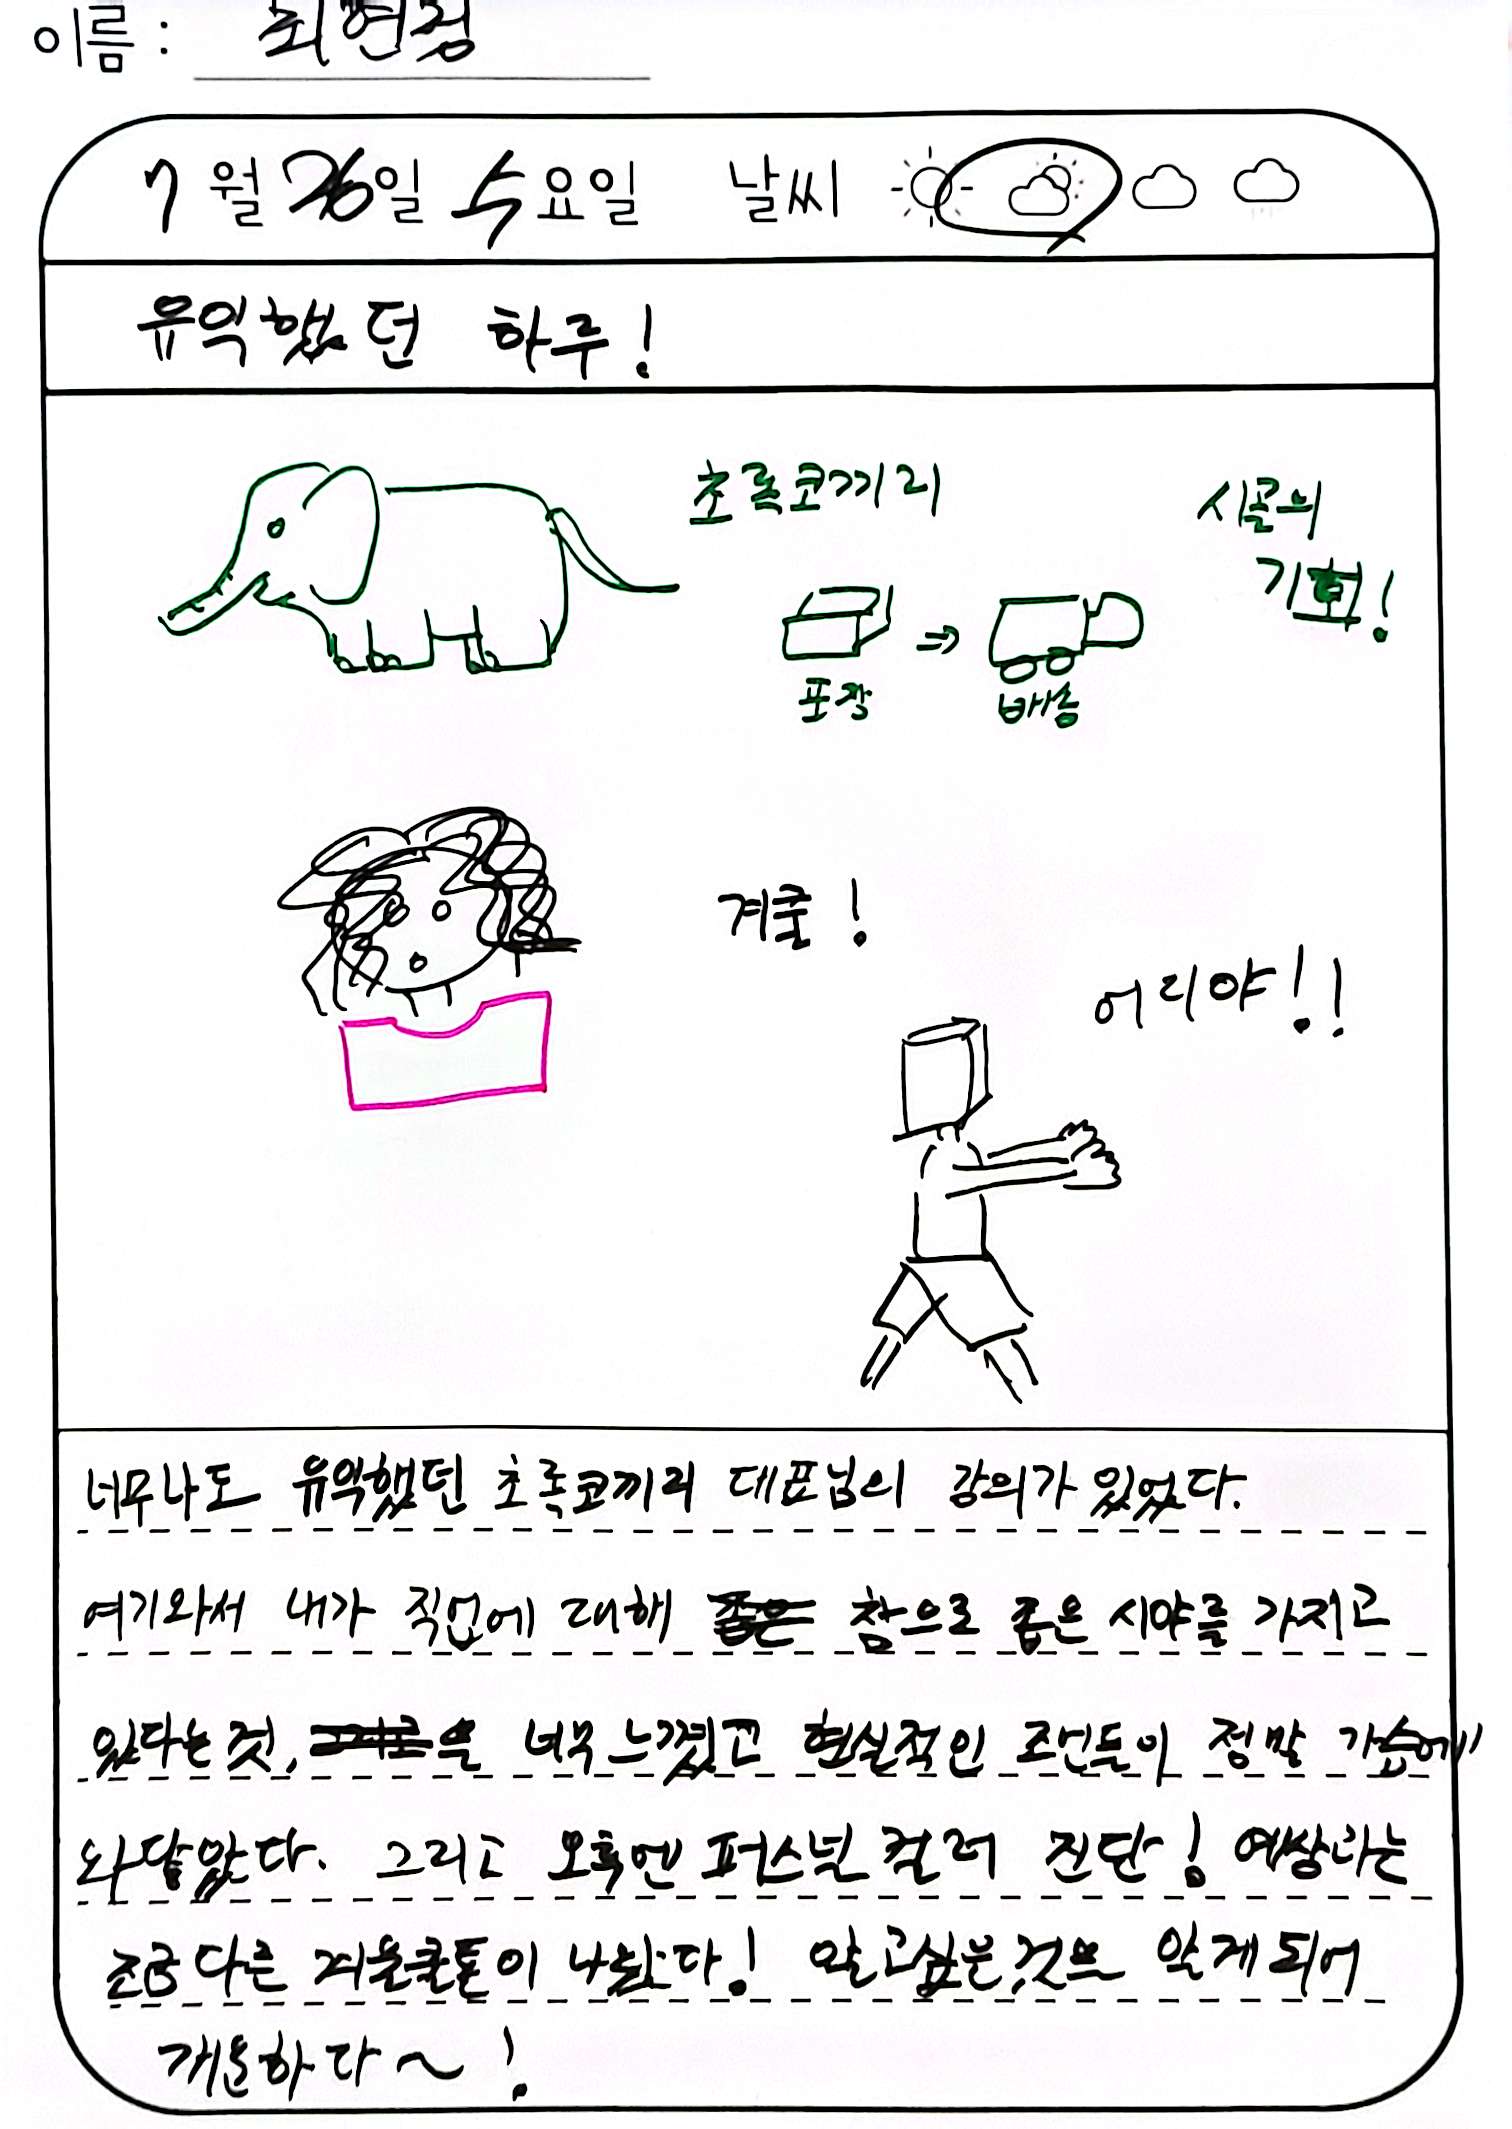 이름 : 최현정
7월 26일 수요일 날씨
유익했던 하루!
초록코끼리
시골의
기회!
포장
배송
겨쿨!
어디야!!
너무나도 유익했던 초록코끼리 대표님의 강의가 있었다.
여기와서 내가 직업에 대해 좁은 참으로 좁은 시야를 가지고
있다는 것, 을 너무 느꼈고 현실적인 조언들이 정말 가슴에
와닿았다. 그리고 오후엔 퍼스널 컬러 진단! 예상과는
조금 다른 겨울쿨톤이 나왔다! 알고싶은 것도 알게되어
개운하다~!